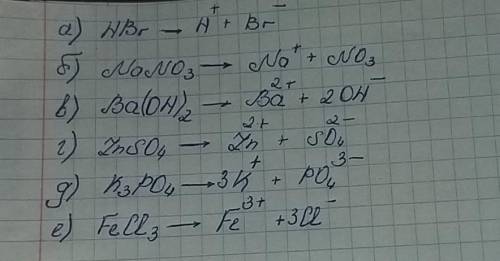 а) HBr → H⁺ + Br⁻
б) NaNO₃ → Na⁺ + NO₃
в) Ba(OH)₂ → Ba²⁺ + 2OH⁻
г) ZnSO₄ → Zn²⁺ + SO₄²⁻
д) K₃PO₄ → 3K⁺ + PO₄³⁻
е) FeCl₃ → Fe³⁺ + 3Cl⁻